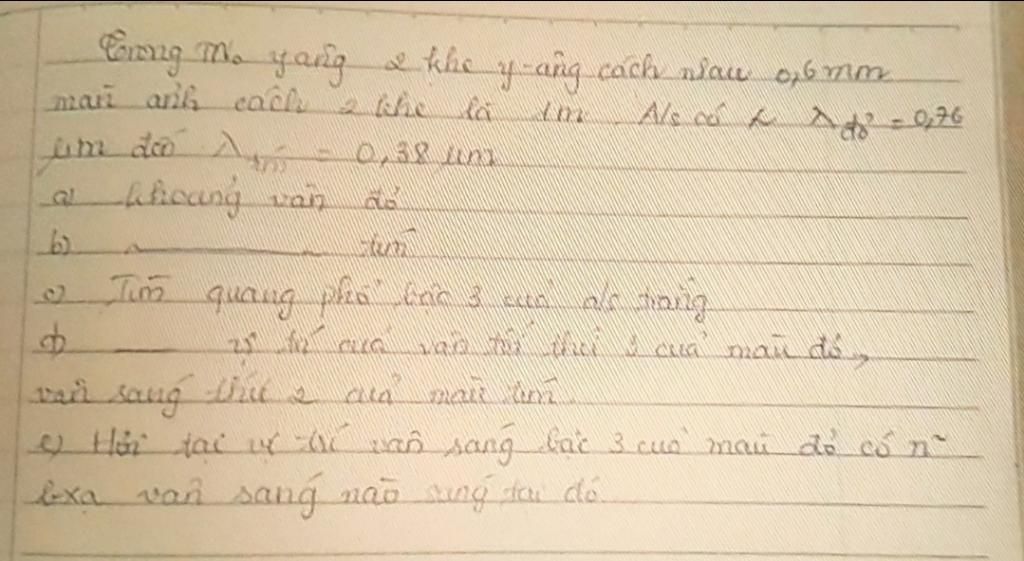 Trong TNo yâng 2 khe y-âng cách nhau 0,6mm
màn ảnh cách 2 khe là 1m. A/s có λ đỏ = 0,76
μm đến λ tím = 0,38 μm
a) khoảng vân đỏ
b) ——— tím
c) Tìm quang phổ bậc 3 của a/s trắng
d) —— vị trí của vân tối thứ 3 của màu đỏ,
vân sáng thứ 2 của màu tím.
e) Hỏi tại vị trí vân sáng bậc 3 của màu đỏ có n~
b.xạ vân sáng nào tại đó